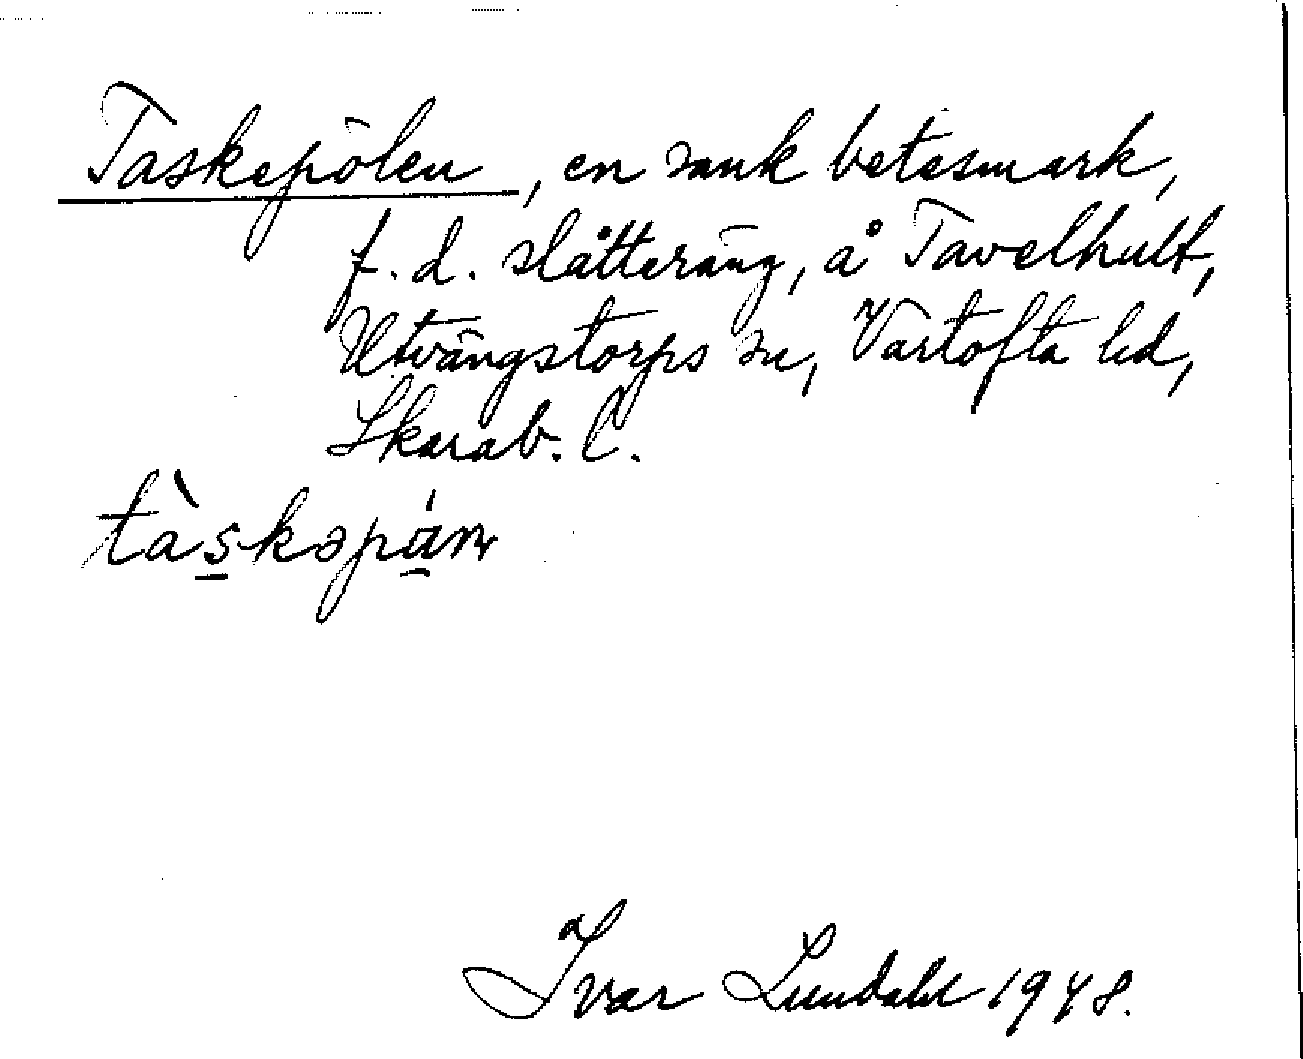 Taskepölen, en sank betesmark,
f.d. slåtteräng, å Tavelhult,
Utvängstorps sn, Vartofta hd,
Skarab. l.
tàskəpán
Ivar Lundahl 1948.